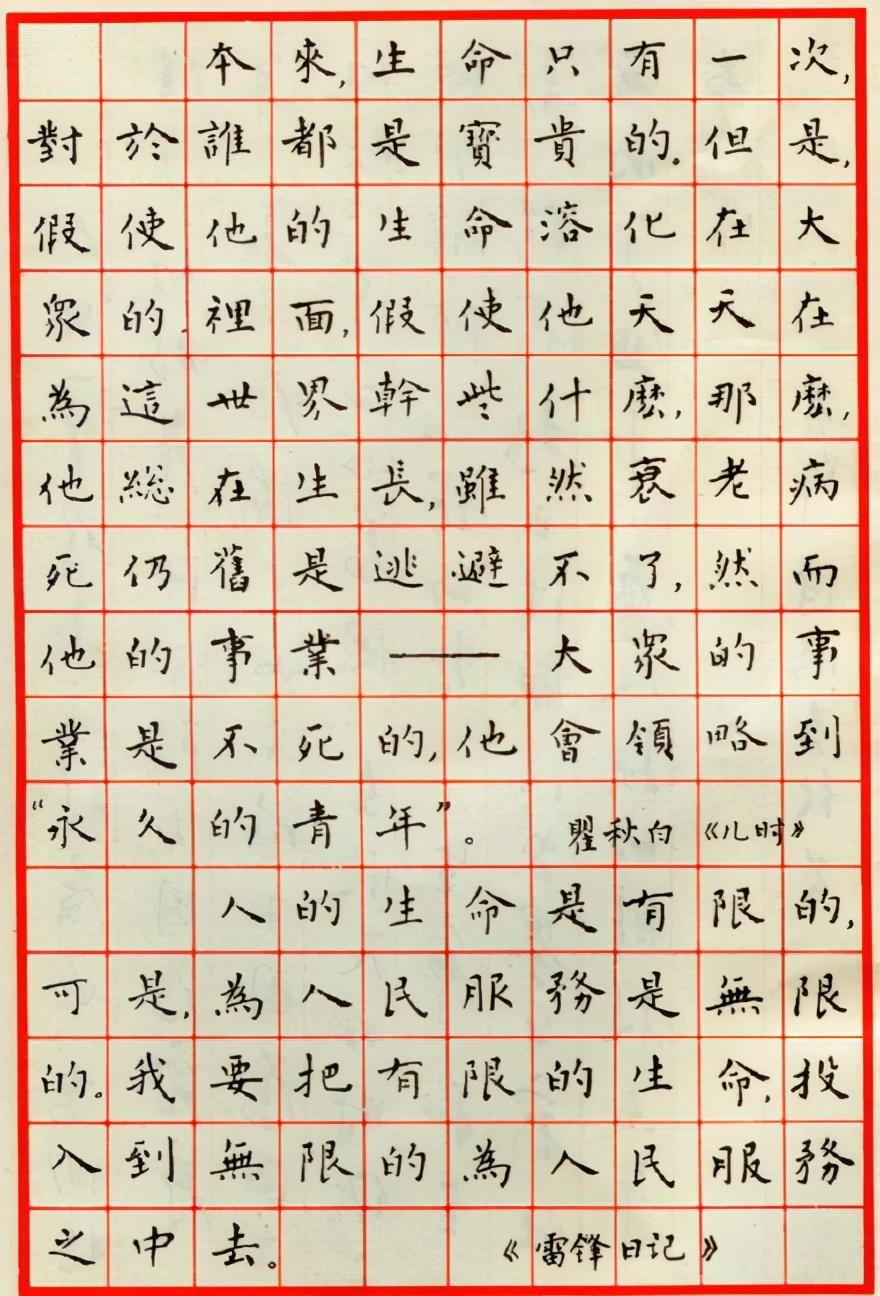 本來,生命只有一次,
對於誰都是寶貴的。但是,
假使他的生命溶化在大
眾的裡面,假使他天天在
為這世界幹些什麼,那麼,
他總在生長,雖然衰老病
死仍舊是逃避不了,然而
他的事業——大眾的事
業是不死的,他會領略到
“永久的青年”。 瞿秋白《儿时》
人的生命是有限的,
可是,為人民服務是無限
的。我要把有限的生命,投
入到無限的為人民服務
之中去。 《雷锋日记》